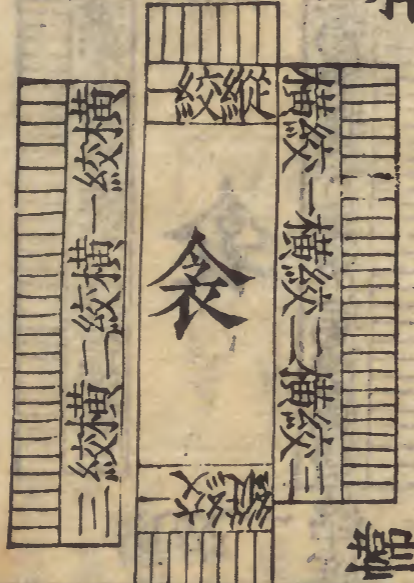 橫絞一橫絞二橫絞三
縱絞一
衾
縱絞一
橫絞一橫絞二橫絞三